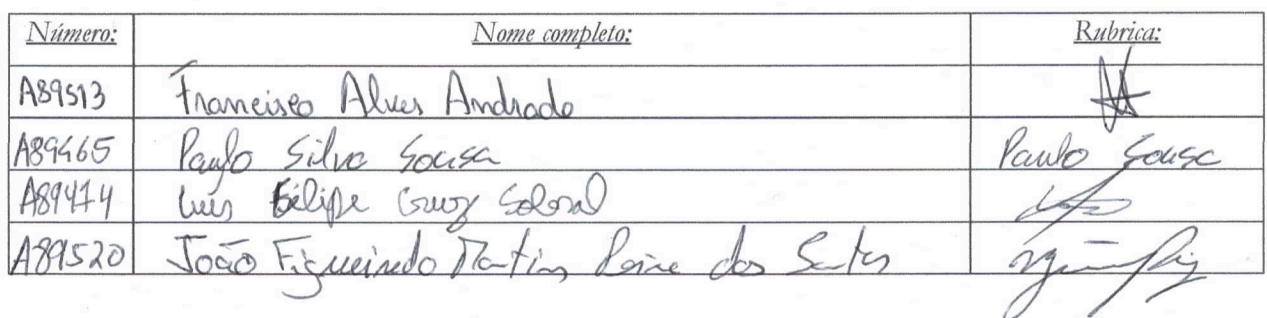 Número: Nome completo: Rubrica:
A89513 Francisco Alves Andrade
A89465 Paulo Silva Sousa Paulo Sousa
A89474 Luís Felipe Cruz Sobral
A89520 João Figueiredo Martins Peixe dos Santos